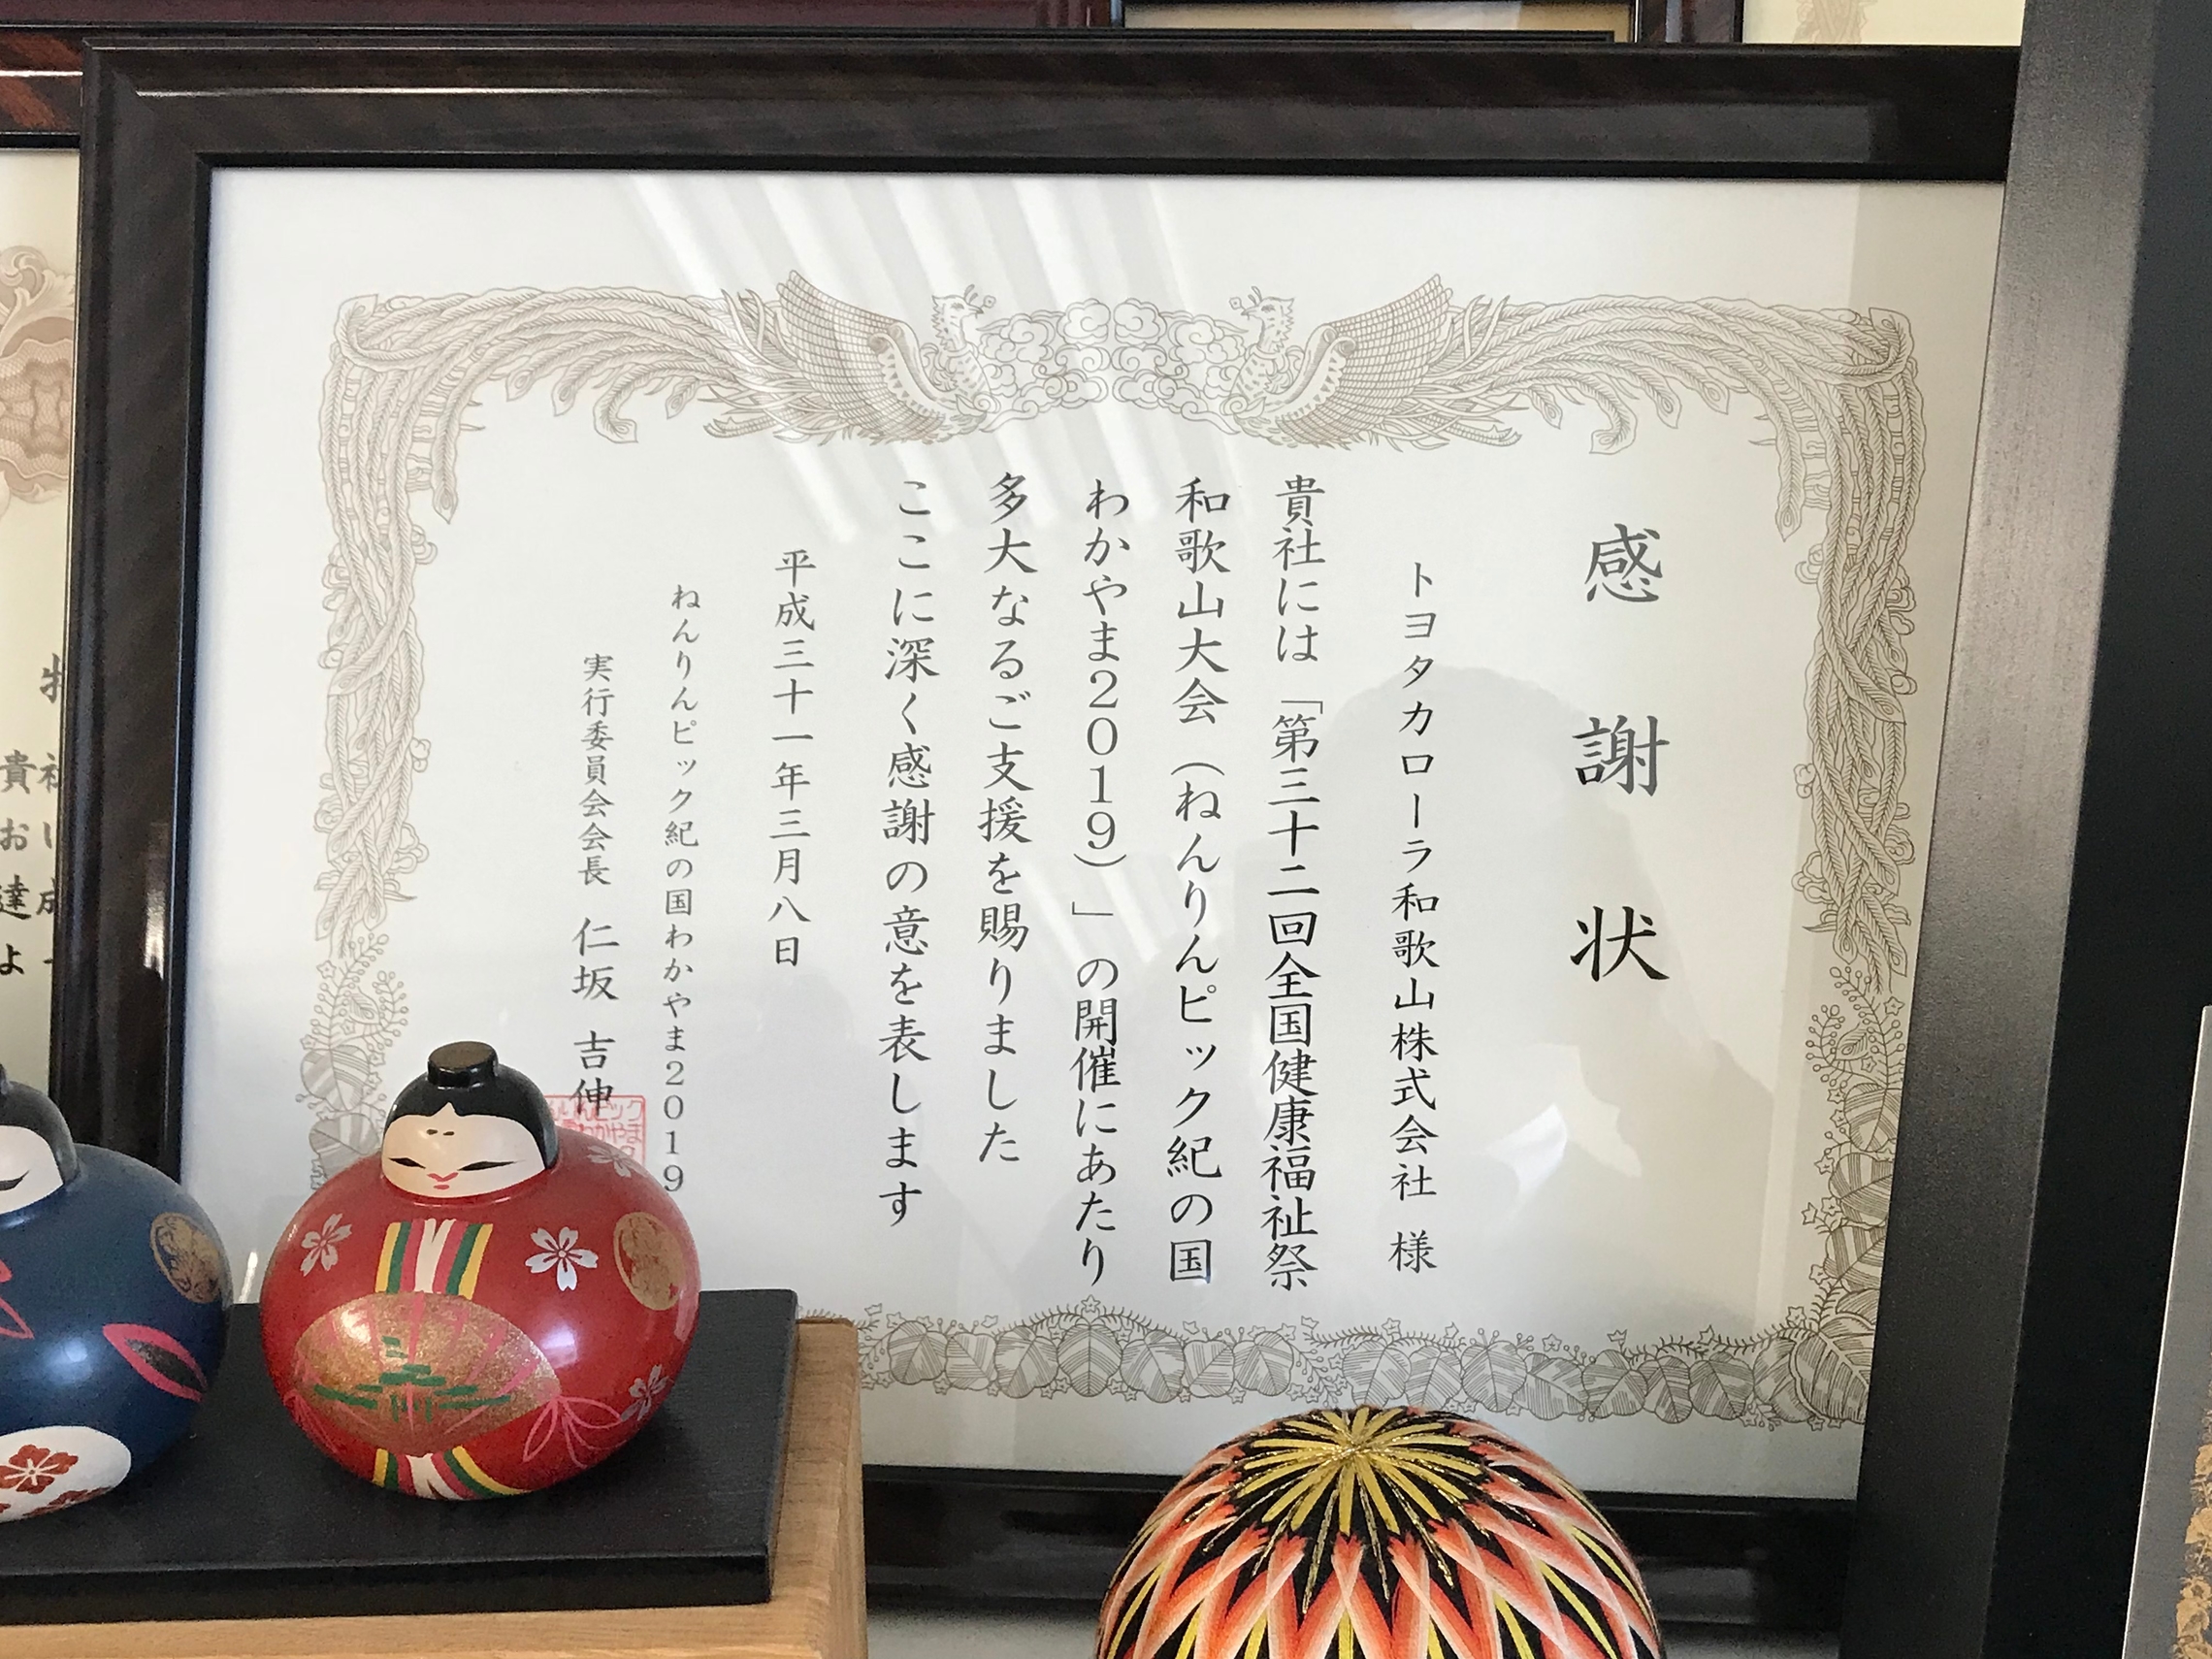 感謝状
トヨタカローラ和歌山株式会社 様
貴社には「第三十二回全国健康福祉祭
和歌山大会（ねんりんピック紀の国
わかやま2019）」の開催にあたり
多大なるご支援を賜りました
ここに深く感謝の意を表します
平成三十一年三月八日
ねんりんピック紀の国わかやま2019
実行委員会会長 仁坂 吉伸